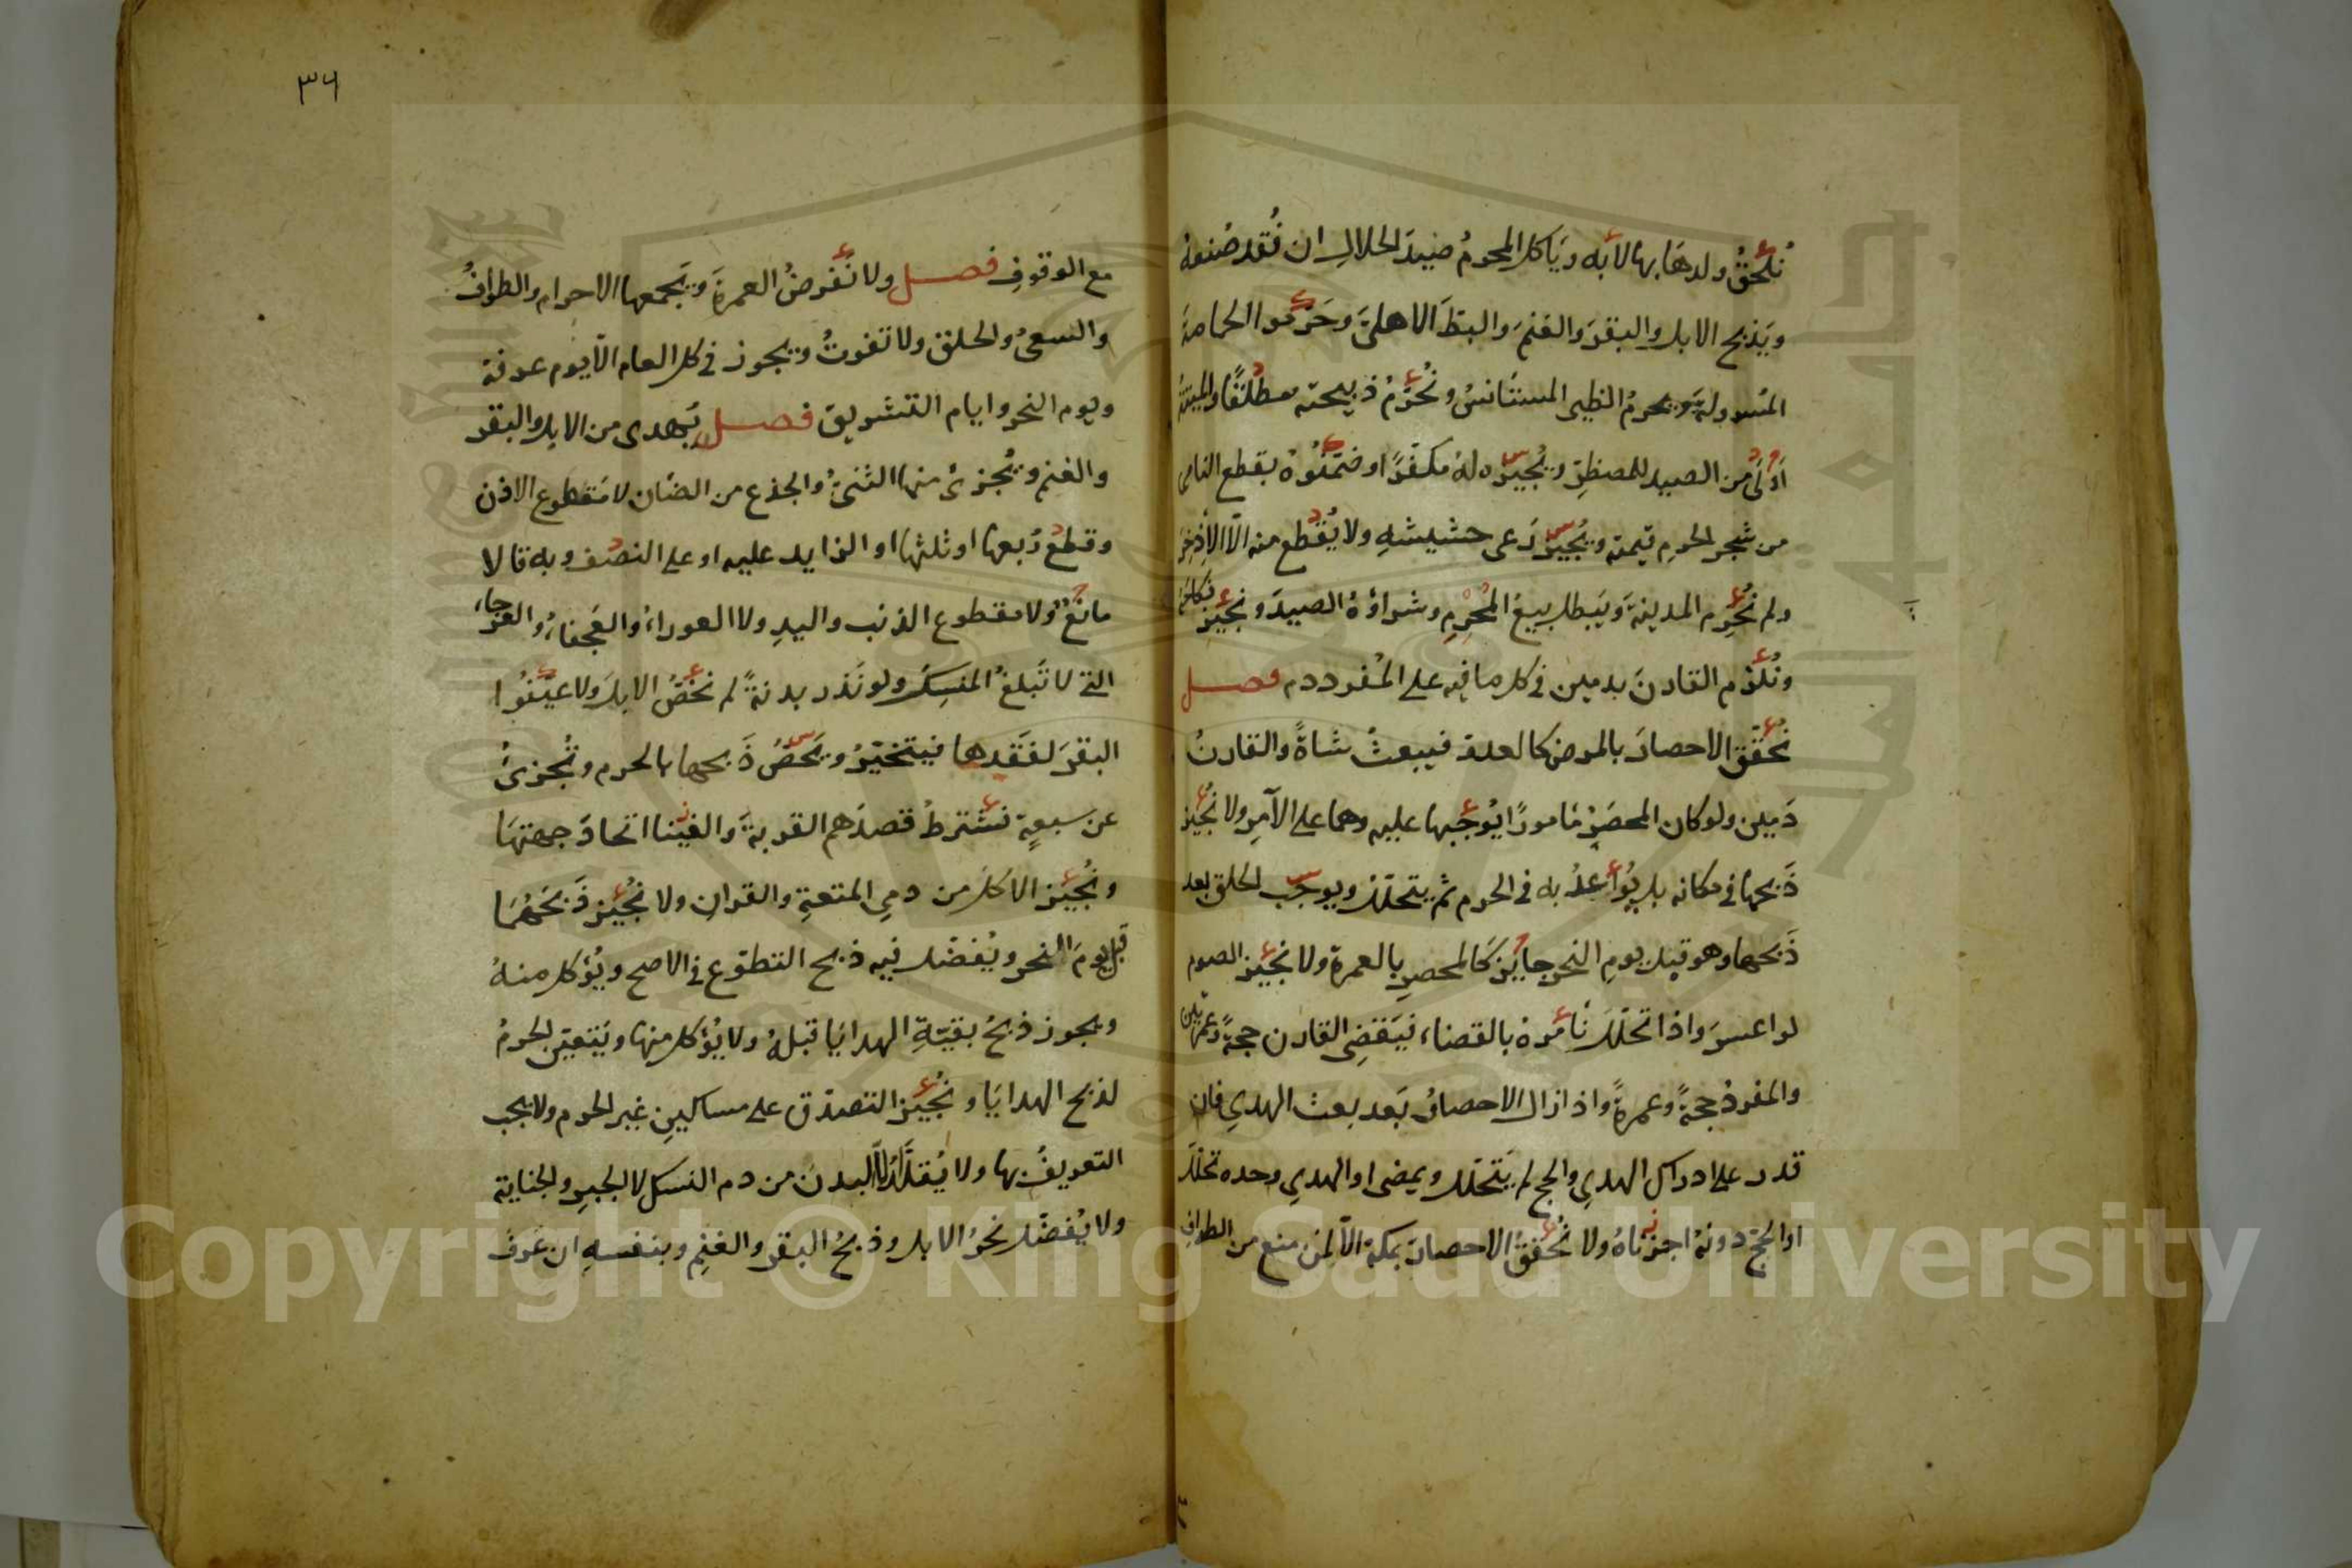 نُلحقُ ولدها بها لا به وياكل المحرمُ صيدَ الحلالِ ان فُقد صُنعهُ
ويَذبح الابل والبقرَ والغنمَ والبطَّ الاهليَّ وحَرَّموا الحمامةَ
المُسرولةَ ويحرمُ الظبى المستأنسُ ونُحرِّمُ ذبيحته مطلقًا والميتةُ
اَولَى من الصيد للمضطرِّ ويُجيزه لهُ مكفّرًا وضمّنُوهُ بقطع النامى
من شجر الحرمِ قيمته ويُجيزُ رَعى حشيشهِ ولا يُقطع منه الّا الاِذخِرُ
ولم نُحرِّم المدينةَ ويَبطل بيعُ المُحْرِمِ وشراؤهُ الصيدَ ونجيزُ نكاحَهُ
ونُلزم القارنَ بدمين فى كل ما فيه على المُفرد دم فصل
نُحقّق الاحصارَ بالمرض كالعدو فيبعثُ شاةً والقارنُ
دَمين ولو كان المحصَرُ مَامورًا يُوجبها عليه وهما على الآمِر ولا نُجيز
ذَبحها فى مكانه بل يُواعدُ به فى الحرم ثم يتحلّل ويوجبُ الحلق بعد
ذَبحها وهو قبل يوم النحر جايزٌ كالمحصرِ بالعمرة ولا نجيز الصوم
لو اعسرَ واذا تحلّلَ نَأمُرهُ بالقضاء فيَقضِى القارن حجةً وعمرتين
والمفردُ حجةً وعمرةً واذا زال الاحصارُ بَعد بعث الهدىِ فان
قدر على ادراك الهدىِ والحج لم يَتحلّل ويمضى او الهدىِ وحده تحلّلَ
او الحجِّ دونهُ اجزناهُ ولا نُحققُ الاحصارَ بمكة الّا لمن منع من الطوافِ
٣٦
مع الوقوفِ فصل ولا نَفرضُ العمرةَ ويَجمعها الاحرام والطوافُ
والسعىُ والحلق ولا تفوتُ ويجوز فى كل العام الّا يوم عرفة
ويوم النحر وايام التشريق فصل يُهدى من الابل والبقر
والغنم ويُجزئُ منها الثنىُّ والجذع من الضان لا مَقطوع الاذن
وقطعُ رُبعها او ثلثها او الزايد عليه او على النصف وبه قالا
مانعٌ ولا مقطوع الذنب واليدِ ولا العوراءُ والعَجفاءُ والعرجاءُ
التى لا تَبلغُ المنسِكَ ولو نَذر بدنةً لم نَخُصُّ الابلَ ولا عيّنوُا
البقرَ لفقدها فيتخيّرُ ويَخصُّ ذَبحها بالحرم وتُجزئُ
عن سبعةٍ نَشترطُ قصدَهم القربةَ والغينا اتحادَ جهتها
ونُجيز الاكلَ من دمىِ المتعةِ والقرانِ ولا نُجيز ذَبحَهُمَا
قبل يومَ النحر ويُفضّل فيه ذبح التطوّع فى الاصح ويُؤكل منهُ
ويجوز ذبحُ بقيّةِ الهدايَا قبلهُ ولا يُؤكل منها ويَتعيّن الحرمُ
لذبح الهدايَا ونُجيز التصدّق على مساكينِ غير الحرم ولا يجب
التعريفُ بها ولا يُقلّدُ الّا البدنَ من دم النسك لا الجبرِ والجناية
ولا يُفضّل نحرُ الابل وذبحُ البقر والغنمِ وبنفسهِ ان عَرفَ
Copyright © King Saud University